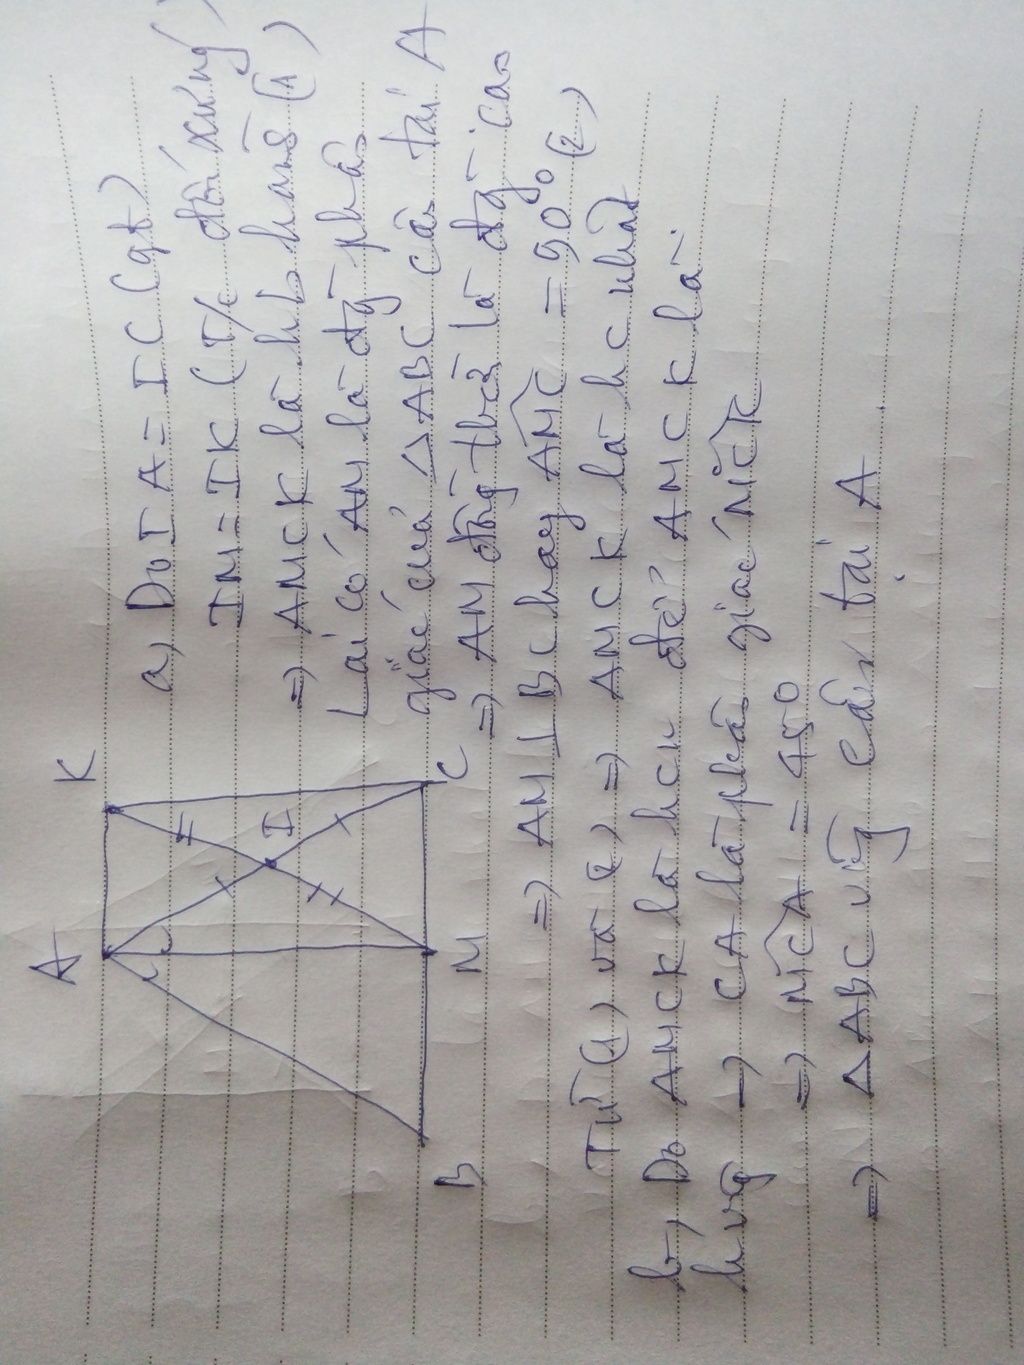 A
K
I
B
M
C
a, Do IA = IC (gt)
IM = IK (T/c đối xứng)
=> AMCK là hbhành (1)
Lại có AM là đg phân
giác của △ABC cân tại A
=> AM đồng thời là đg cao
=> AM ⊥ BC hay AMC = 90⁰ (2)
Từ (1) và (2) => AMCK là hc nhật
b, Do AMCK là hcn để AMCK là
hvg -> CA là phân giác MCK
=> MCA = 45⁰
=> △ABC vuông cân tại A